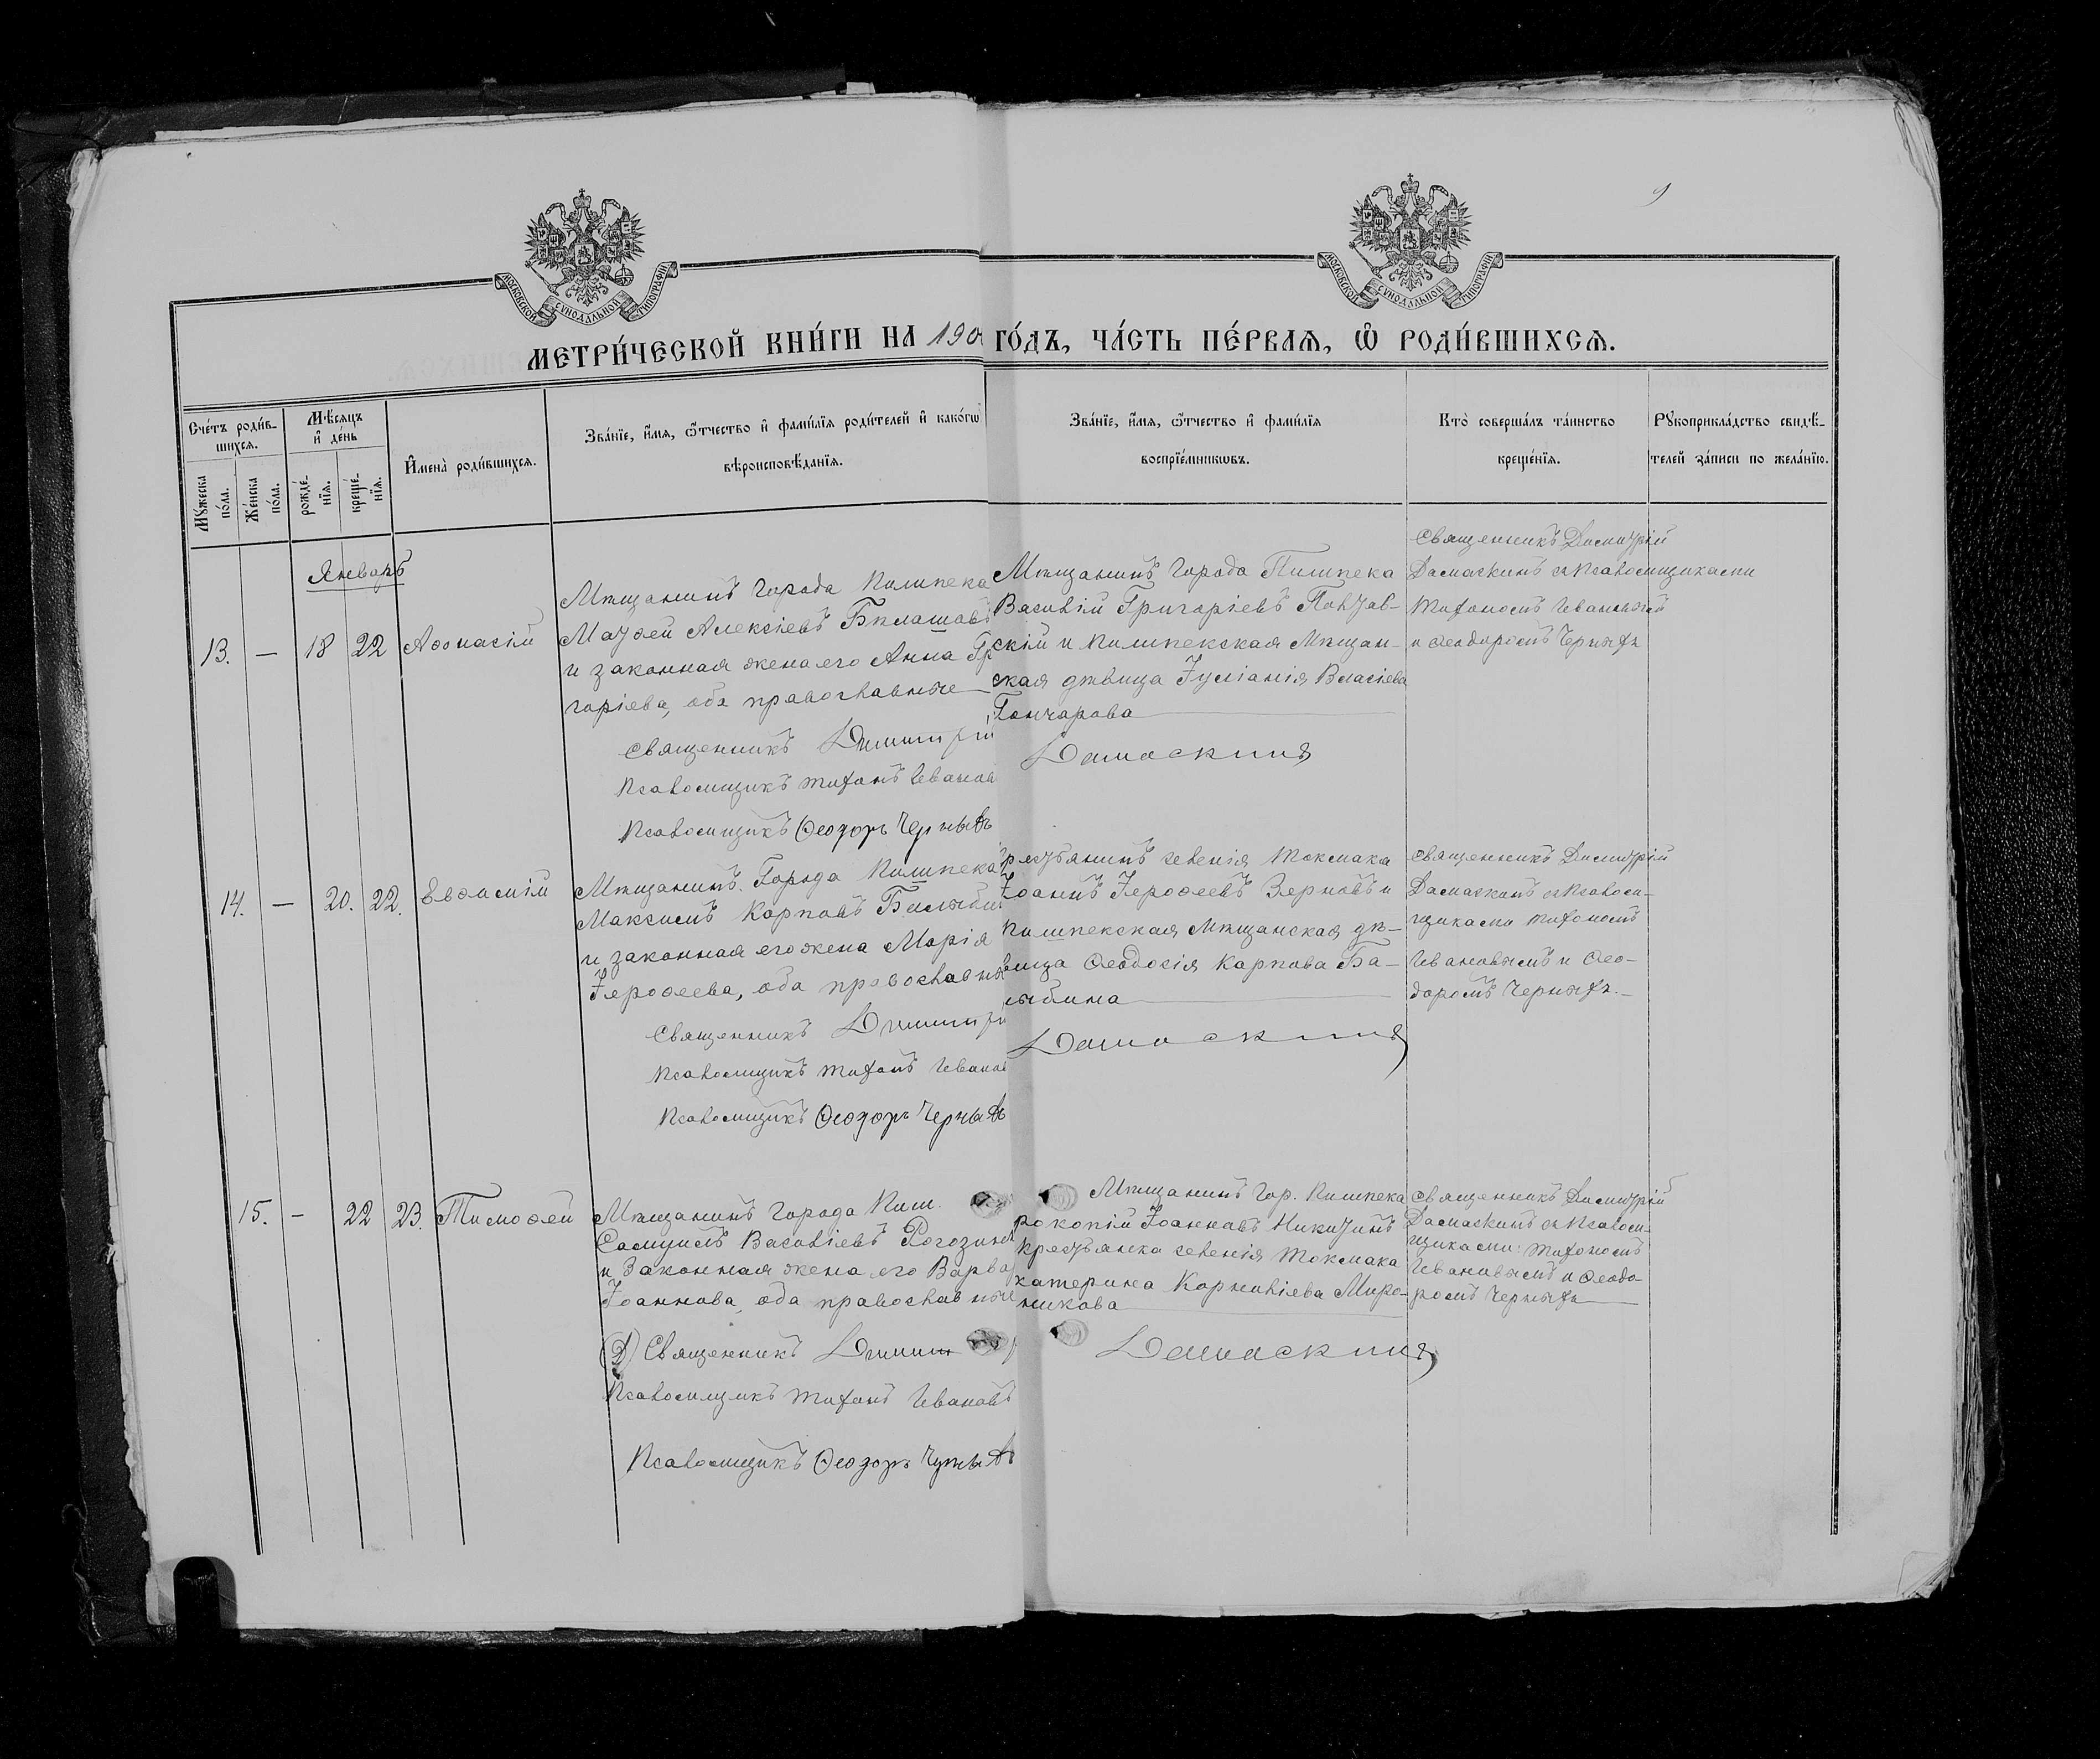 9
МОСКОВСКОЙ СУНОДАЛЬНОЙ ТИПОГРАФІИ
МОСКОВСКОЙ СУНОДАЛЬНОЙ ТИПОГРАФІИ
МЕТРИ́ЧЕСКОЙ КНИ́ГИ НА 190
ГО́ДЪ, ЧА́СТЬ ПЕ́РВАѦ, Ѽ РОДИ́ВШИХСѦ.
Сче́тъ роди́в-
шихсѧ.
Мꙋ́жеска
по́ла.
Же́нска
по́ла.
Мѣ́сѧцъ
и҆ де́нь
рожде́-
нїѧ.
креще́-
нїѧ.
И҆мена̀ роди́вшихсѧ.
Зва́нїе, и҆́мѧ, ѻ҆́тчество и҆ фами́лїѧ роди́телей и҆ како́гѡ
вѣроисповѣ́данїѧ.
Зва́нїе, и҆́мѧ, ѻ҆́тчество и҆ фами́лїѧ
воспрїе́мникѡвъ.
Кто̀ соверша́лъ та́инство
креще́нїѧ.
Рꙋкоприкла́дство свидѣ́-
телей за́писи по жела́нїю.
Январь
13. — 18 22 Аѳонасій
Мѣщанинъ города Пишпека
Матѳей Алексіевъ Билашовъ
и законная жена его Анна Гр
горіева, оба православные
Священникъ Димитрій
Псаломщикъ Тифонъ Иванов
Псаломщикъ Ѳеодоръ Черныхъ
Мѣщанинъ города Пишпека
Василій Григоріевъ Полтав-
скій и Пишпекская Мѣщан-
ская дѣвица Іуліанія Власіева
Гончарова
Дамаскинъ
Священникъ Димитрій
Дамаскинъ съ Псаломщиками
Тифономъ Ивановымъ
и Ѳеодоромъ Черныхъ
14. — 20. 22. Евѳимій
Мѣщанинъ Города Пишпека
Максимъ Карповъ
и законная его жена Марія
Іероѳеева, оба православны
Священникъ Димитрі
Псаломщикъ Тифонъ Иванов
Псаломщикъ Ѳеодоръ Черныхъ
рестьянинъ селенія Токмака
Іоаннъ Іероѳеевъ Зерновъ и
Пишпекская Мѣщанская дѣ-
вица Ѳеодосія Карпова Ба-
лыбина
Дамаскинъ
Священникъ Димитрій
Дамаскинъ съ Псалом-
щиками Тифономъ
Ивановымъ и Ѳео-
доромъ Черныхъ.
15. — 22 23. Тимоѳей
Мѣщанинъ города Пиш.
Самуилъ Васильевъ Рогозинъ
и Законная жена его Варва
Іоаннова, оба православные
Священникъ Димит
Псаломщикъ Тифонъ Ивановъ
Псаломщикъ Ѳеодоръ Черныхъ
Мѣщанинъ гор. Пишпека
рокопій Іоанновъ Никитинъ
крестьянка селенія Токмака
катерина Корниліева Миро-
никова
Дамаскинъ
Священникъ Димитрій
Дамаскинъ съ Псалом-
щиками: Тифономъ
Ивановымъ и Ѳеодо-
ромъ Черныхъ